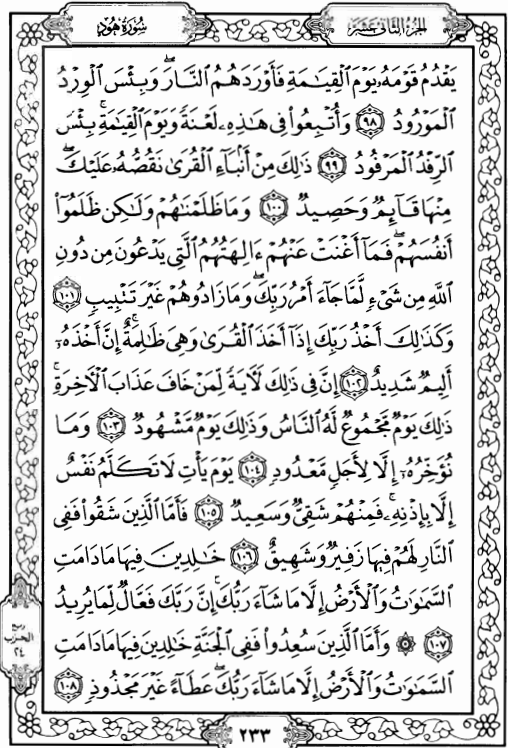 سُورَةُ هُودٍ
الجُزءُ الثَّانِى عَشَرَ
يَقْدُمُ قَوْمَهُۥ يَوْمَ ٱلْقِيَـٰمَةِ فَأَوْرَدَهُمُ ٱلنَّارَ ۖ وَبِئْسَ ٱلْوِرْدُ
ٱلْمَوْرُودُ ٩٨ وَأُتْبِعُوا۟ فِى هَـٰذِهِۦ لَعْنَةً وَيَوْمَ ٱلْقِيَـٰمَةِ ۚ بِئْسَ
ٱلرِّفْدُ ٱلْمَرْفُودُ ٩٩ ذَٰلِكَ مِنْ أَنۢبَآءِ ٱلْقُرَىٰ نَقُصُّهُۥ عَلَيْكَ ۖ
مِنْهَا قَآئِمٌ وَحَصِيدٌ ١٠٠ وَمَا ظَلَمْنَـٰهُمْ وَلَـٰكِن ظَلَمُوٓا۟
أَنفُسَهُمْ ۖ فَمَآ أَغْنَتْ عَنْهُمْ ءَالِهَتُهُمُ ٱلَّتِى يَدْعُونَ مِن دُونِ
ٱللَّهِ مِن شَىْءٍ لَّمَّا جَآءَ أَمْرُ رَبِّكَ ۖ وَمَا زَادُوهُمْ غَيْرَ تَتْبِيبٍ ١٠١
وَكَذَٰلِكَ أَخْذُ رَبِّكَ إِذَآ أَخَذَ ٱلْقُرَىٰ وَهِىَ ظَـٰلِمَةٌ ۚ إِنَّ أَخْذَهُۥٓ
أَلِيمٌ شَدِيدٌ ١٠٢ إِنَّ فِى ذَٰلِكَ لَـَٔايَةً لِّمَنْ خَافَ عَذَابَ ٱلْـَٔاخِرَةِ ۚ
ذَٰلِكَ يَوْمٌ مَّجْمُوعٌ لَّهُ ٱلنَّاسُ وَذَٰلِكَ يَوْمٌ مَّشْهُودٌ ١٠٣ وَمَا
نُؤَخِّرُهُۥٓ إِلَّا لِأَجَلٍ مَّعْدُودٍ ١٠٤ يَوْمَ يَأْتِ لَا تَكَلَّمُ نَفْسٌ
إِلَّا بِإِذْنِهِۦ ۚ فَمِنْهُمْ شَقِىٌّ وَسَعِيدٌ ١٠٥ فَأَمَّا ٱلَّذِينَ شَقُوا۟ فَفِى
ٱلنَّارِ لَهُمْ فِيهَا زَفِيرٌ وَشَهِيقٌ ١٠٦ خَـٰلِدِينَ فِيهَا مَا دَامَتِ
ٱلسَّمَـٰوَٰتُ وَٱلْأَرْضُ إِلَّا مَا شَآءَ رَبُّكَ ۚ إِنَّ رَبَّكَ فَعَّالٌ لِّمَا يُرِيدُ
١٠٧ ۞ وَأَمَّا ٱلَّذِينَ سُعِدُوا۟ فَفِى ٱلْجَنَّةِ خَـٰلِدِينَ فِيهَا مَا دَامَتِ
ٱلسَّمَـٰوَٰتُ وَٱلْأَرْضُ إِلَّا مَا شَآءَ رَبُّكَ ۖ عَطَآءً غَيْرَ مَجْذُوذٍ ١٠٨
ربع
الحزب
٢٤
٢٣٣